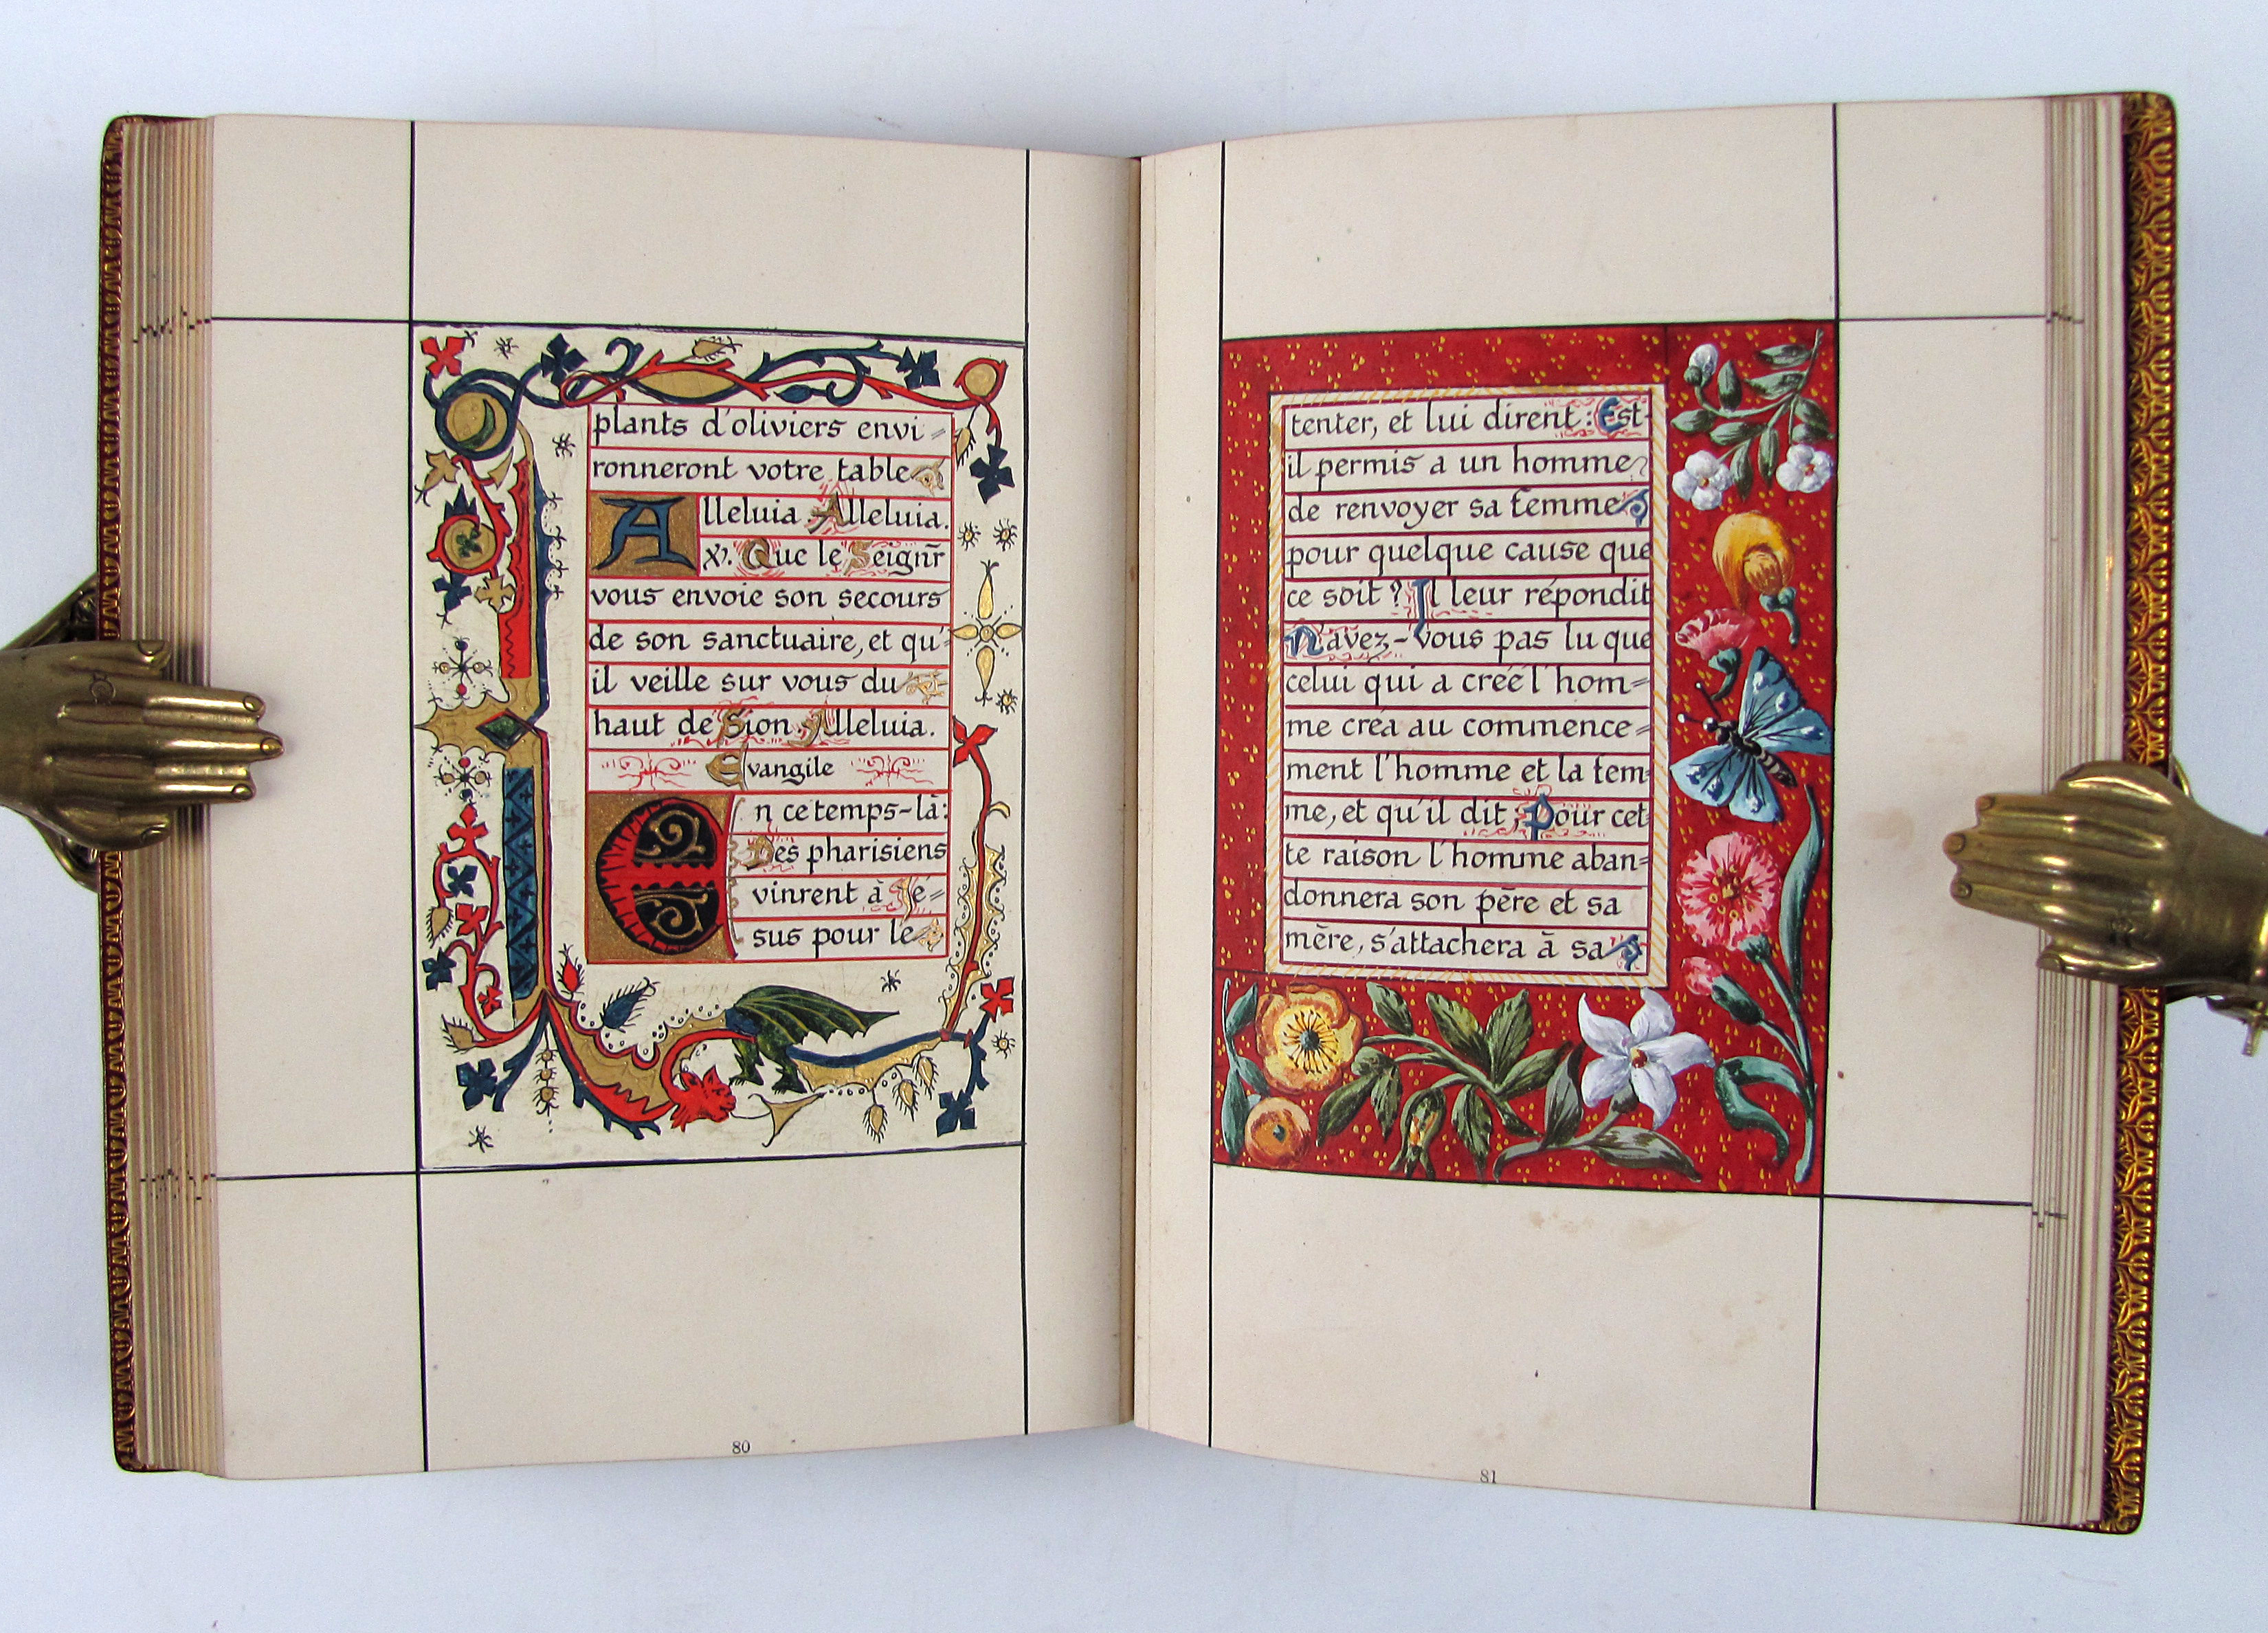 plants d'oliviers envi=
ronneront votre table
Alleluia Alleluia.
℣. Que le Seignr̃
vous envoie son secours
de son sanctuaire, et qu'
il veille sur vous du
haut de Sion. Alleluia.
Evangile
En ce temps-là:
Des pharisiens
vinrent à Jé=
sus pour le
80
tenter, et lui dirent: Est-
il permis a un homme
de renvoyer sa femme
pour quelque cause que
ce soit? Il leur répondit
N'avez-vous pas lu que
celui qui a créé l'hom=
me créa au commence=
ment l'homme et la fem=
me, et qu'il dit; Pour cet=
te raison l'homme aban=
donnera son père et sa
mère, s'attachera à sa
81